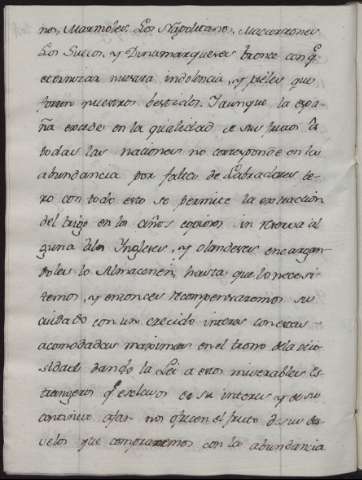 nos, Marmoles Los Napolitanos, Macarrones
Los Suecos, y Dinamarqueses bronce con q.e
eternizar nuestra indolencia, y pieles que
forren nuestros bestidos. Y aunque la espa-
ña excede en la qualidad de sus frutos à
todas las naciones no corresponde en la
abundancia por falta de Labradores pe-
ro con todo esto se permite la extraccion
del trigo en los años copiosos sin reserva al-
guna à los Ingleses, y olandeses encargan-
doles lo Almacenen, hasta que lo necesi-
temos, y entonces recompensaremos su
cuidado con un crecido interes con estas
acomodadas maximas en el trono de la ocio-
sidad dando la Lei a estos miserables Es-
trangeros q.e esclavos de su interes y de su
continuo afan nos ofrecen el fruto de sus des-
velos que compraremos con la abundancia